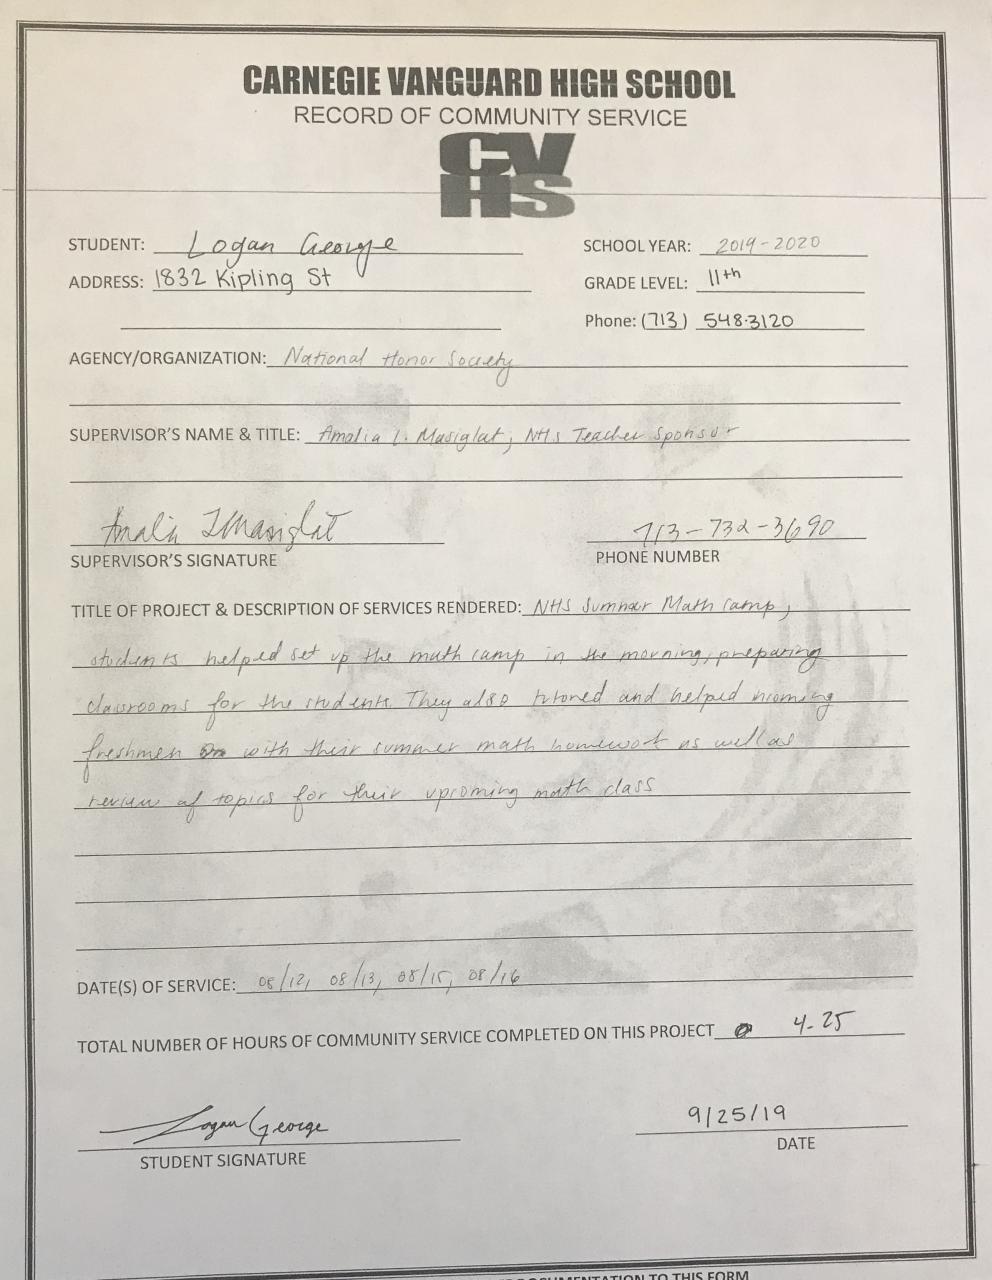 CARNEGIE VANGUARD HIGH SCHOOL
RECORD OF COMMUNITY SERVICE
CV
HS
STUDENT: Logan George
SCHOOL YEAR: 2019-2020
ADDRESS: 1832 Kipling St
GRADE LEVEL: 11th
Phone: (713) 548-3120
AGENCY/ORGANIZATION: National Honor Society
SUPERVISOR'S NAME & TITLE: Amalia I. Masiglat, NHS Teacher Sponsor
Amalia I Masiglat 713-732-3690
SUPERVISOR'S SIGNATURE PHONE NUMBER
TITLE OF PROJECT & DESCRIPTION OF SERVICES RENDERED: NHS Summer Math Camp,
students helped set up the math camp in the morning, preparing
classrooms for the students. They also tutored and helped incoming
freshmen with their summer math homework as well as
review of topics for their upcoming math class
DATE(S) OF SERVICE: 08/12, 08/13, 08/15, 08/16
TOTAL NUMBER OF HOURS OF COMMUNITY SERVICE COMPLETED ON THIS PROJECT 4.25
Logan George 9/25/19
STUDENT SIGNATURE DATE
TO THIS FORM